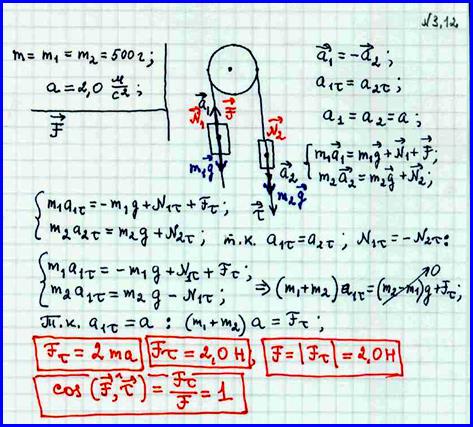 №3,12
m = m₁ = m₂ = 500 г;
a = 2,0 м/с²;
F⃗
a⃗₁
N⃗₁
F⃗
m₁g⃗
N⃗₂
a⃗₂
m₂g⃗
τ⃗
a⃗₁ = -a⃗₂;
a₁τ = a₂τ;
a₁ = a₂ = a;
{ m₁a⃗₁ = m₁g⃗ + N⃗₁ + F⃗;
m₂a⃗₂ = m₂g⃗ + N⃗₂;
{ m₁a₁τ = -m₁g + N₁τ + Fτ;
m₂a₂τ = m₂g + N₂τ; т.к. a₁τ = a₂τ; N₁τ = -N₂τ:
{ m₁a₁τ = -m₁g + N₁τ + Fτ;
m₂a₁τ = m₂g - N₁τ; ⇒ (m₁+m₂)a₁τ = (m₂-m₁)g + Fτ; 0
Т.к. a₁τ = a : (m₁+m₂)a = Fτ;
Fτ = 2ma Fτ = 2,0 Н, F = |Fτ| = 2,0 Н
cos(F⃗,^τ⃗) = Fτ/F = 1